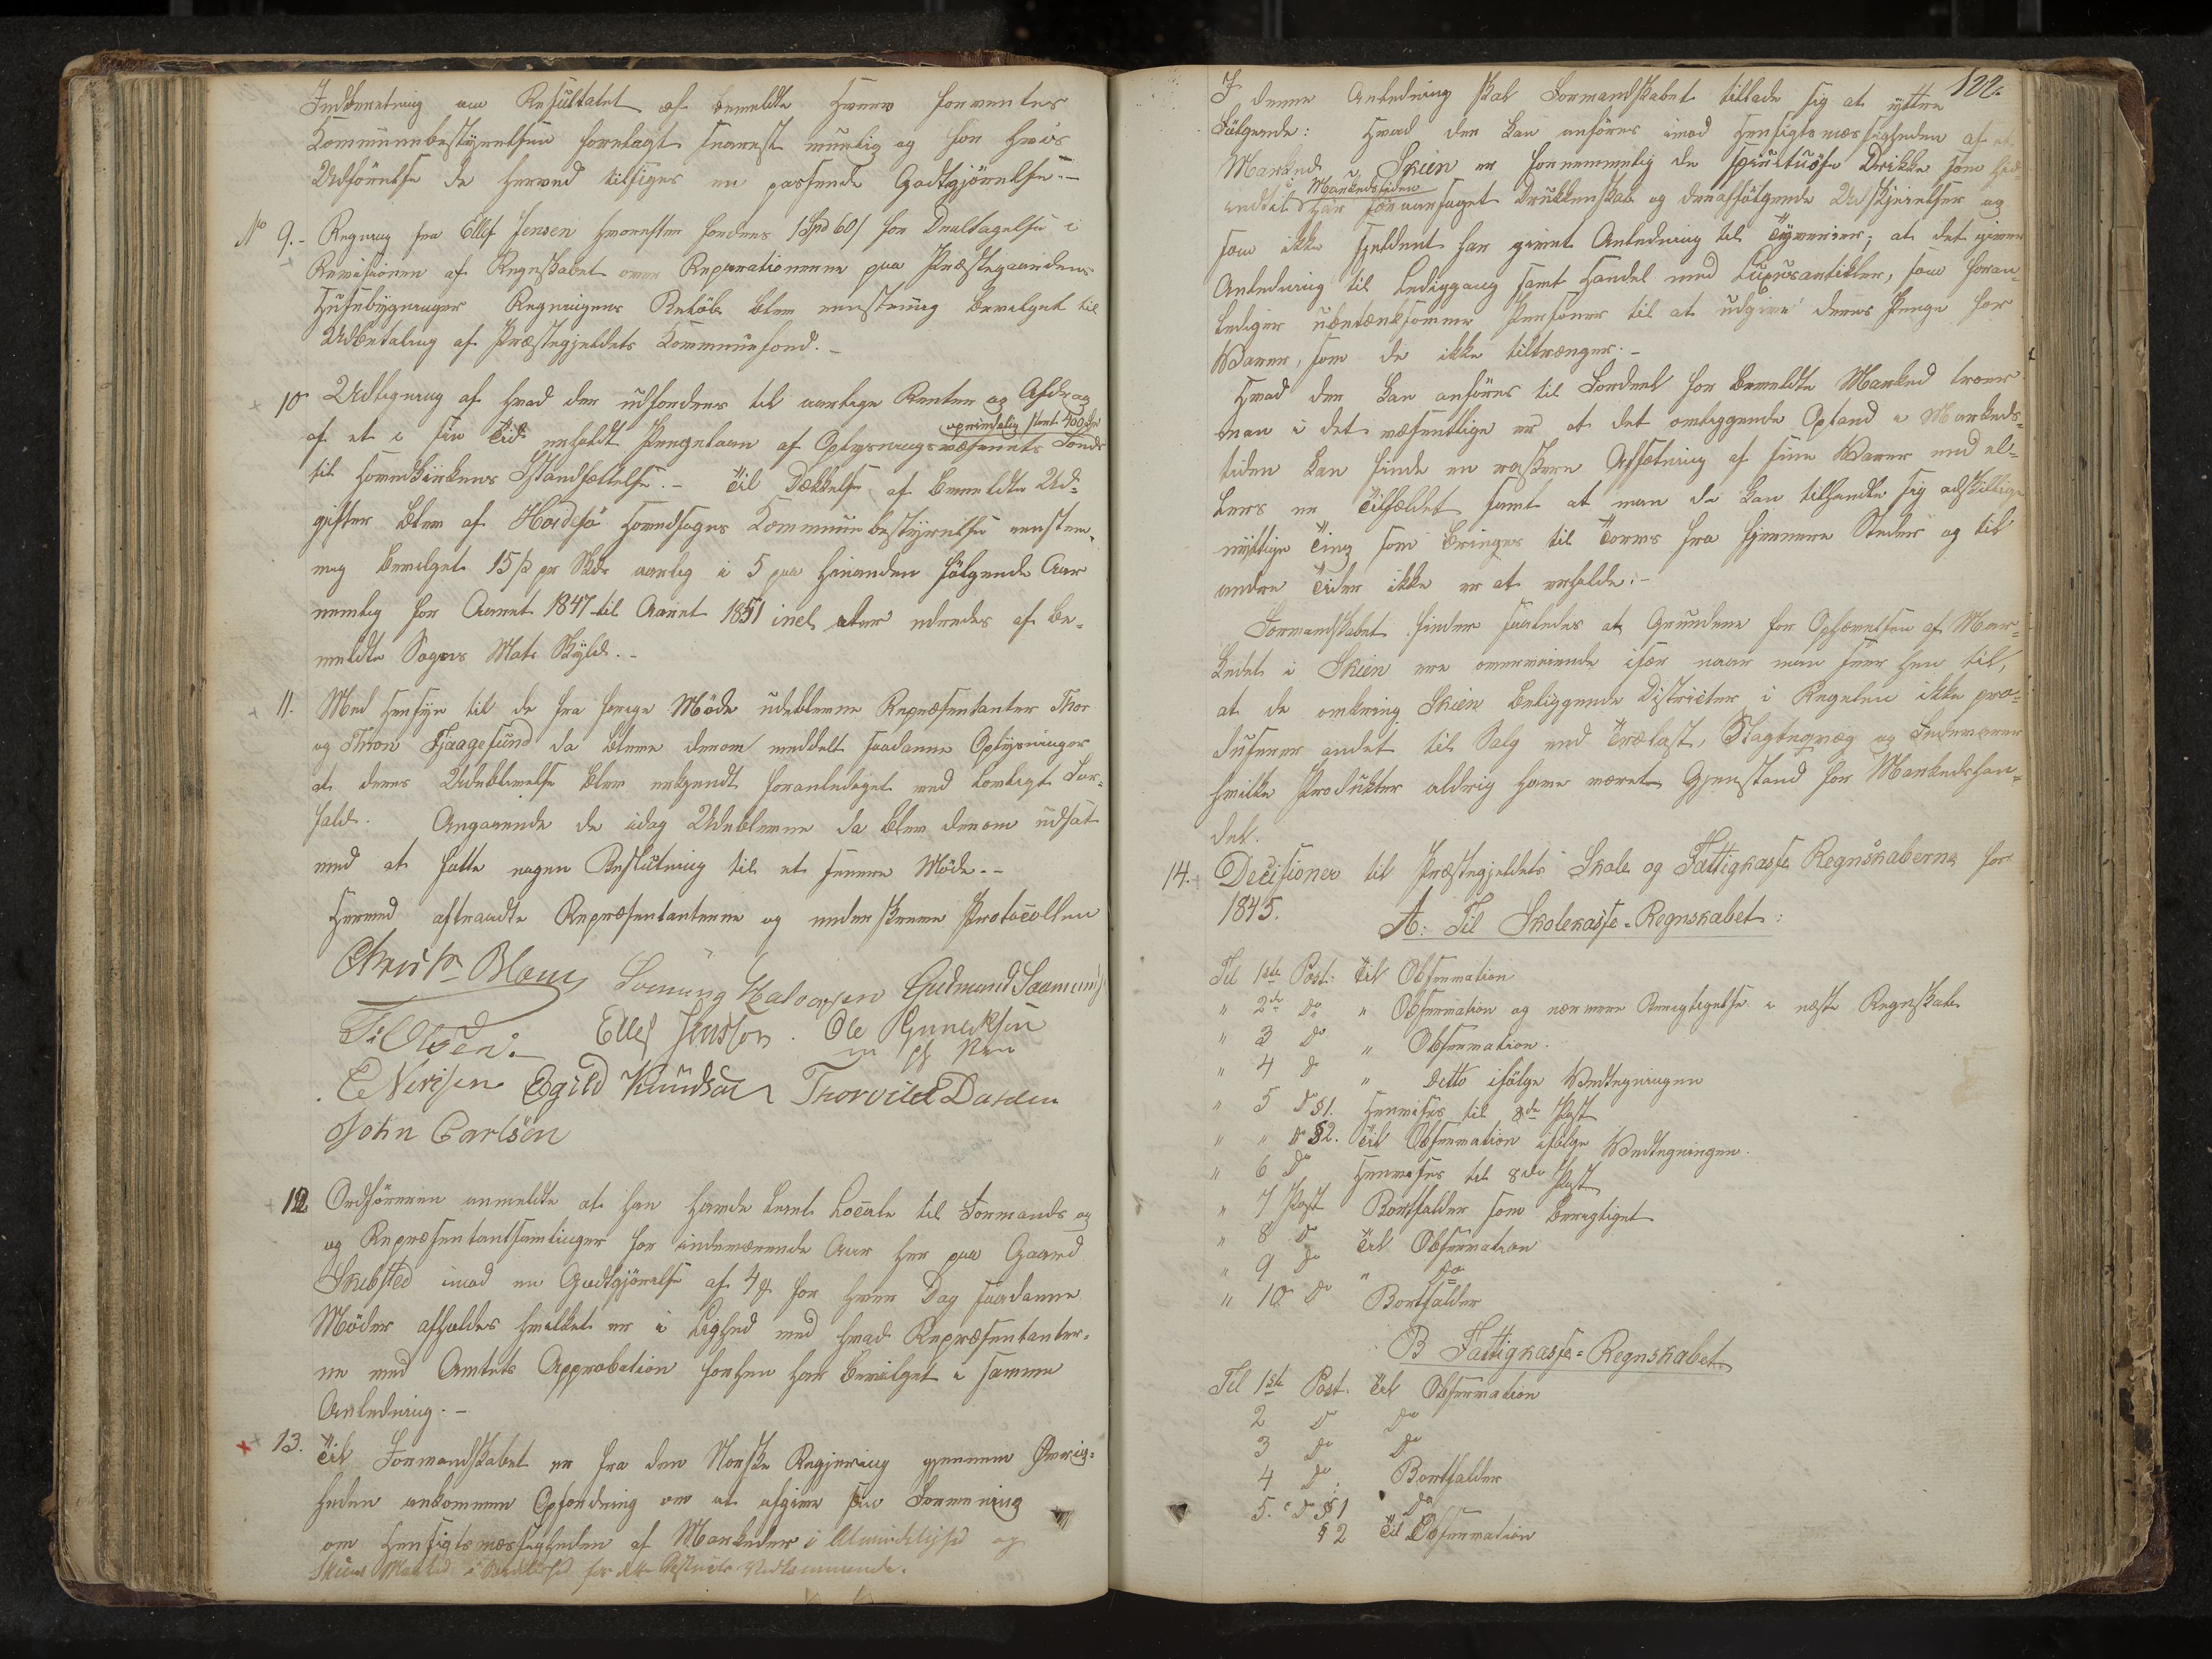 Indberetning om Resultatet af bemeldte Hverv forventes
Kommunebestyrelsen forelagt snarest muelig og for hvis
Udførelse de herved tilsiges en passende Godtgjørelse.-
No 9.- Regning fra Ellef Jensen hvorefter fordres 1 Spd 60 s for Deeltagelse i
Revisionen af Regnskabet over Reparationerne paa Præstegaardens
Huusebygninger Regningens Beløb blev eenstemig bevilget til
Udbetaling af Præstegjeldets Kommunefond.-
10 Udligning af hvad der udfordres til aarlige Renter og Afdrag
af et i sin Tid erholdt Pengelaan af Oplysningsvæsenets Fonds
oprindelig stort 400 Spd
til Hovedkirkens Istandsættelse.- Til Dækkelse af bemeldte Ud-
gifter blev af Hoidesø Hovedsogns Kommunebestyrelse eenstem-
mig bevilget 15 s pr Skdr aarlig i 5 paa hinanden følgende Aar
nemlig for Aaret 1847 til Aaret 1851 incl der udredes af be-
meldte Sogns Matr Skyld.-
11. Med Hensyn til de fra forrige Møde udeblevne Repræsentanter Thor
og Thron Fjaagesund da bleve derom meddelt saadanne Oplysninger
at deres Udeblivelse blev erkjendt foranlediget ved lovligt For-
fald. Angaaende de idag Udeblevne da blev derom udsat
med at fatte nogen Beslutning til et senere Møde.-
Herved aftraadte Repræsentanterne og underskreve Protocollen
Christn Blom Sørning Halvorsen Gudmund Saamunds
T. Olsen. Ellef Jensson. Ole Gunleksen
m p P
E Nirisen Egild Knudsen Thorvild Dahlen
John Carlsøn
12 Ordføreren anmeldte at han havde leiet Locale til Formands og
og Repræsentantsamlinger for indeværende Aar her paa Gaard
Skibsted imod en Godtgjørelse af 4 s for hver Dag saadanne
Møder afholdes hvilket er i Lighed med hvad Repræsentanter-
ne med Amtets Approbation forhen har bevilget i samme
Anledning.-
13. Til Formandskabet er fra den Norske Regjering gjennem Øvrig-
heden ankommen Opfordring om at afgive sin Formening
om Hensigtsmæssigheden af Markeder i Almindelighed og
Skiens Marked i Særdeleshed for dette Districts Vedkommende.
122.
I denne Anledning skal Formandskabet tillade sig at yttre
Følgende: Hvad der kan anføres imod Hensigtsmæssigheden af et
Marked i Skien er fornemmelig de spirituøse Drikke som hid-
indtil i Markedstiden har foraarsaget Drukkenskab og deraffølgende Udskeielser og
som ikke sjeldent har givet Anledning til Tyverier; at det giver
Anledning til Lediggang samt Handel med Luxusartikler, som foran-
lediger ubetænksomme Personer til at udgive deres Penge for
Varer, som de ikke tiltrænger.-
Hvad der kan anføres til Fordeel for bemeldte Marked troer
man i det væsentlige er at det omliggende Opland i Markeds-
tiden kan finde en raskere Afsætning af sine Varer end el-
lers er Tilfældet samt at man da kan tilhandle sig adskillige
nyttige Ting som bringes til Torvs fra fjernere Steder og til
andre Tider ikke er at erholde.-
Formandskabet finder saaledes at Grundene for Ophævelsen af Mar-
kedet i Skien ere overveiende især naar man seer hen til,
at de omkring Skien beliggende Districter i Regelen ikke pro-
duserer andet til Salg end Trælast, Slagteqvæg og Fedevarer
hvilke Produkter aldrig have været Gjenstand for Markedshan-
del.
14. Decisioner til Præstegjeldets Skole og Fattigkasse Regnskaberne for
1845.
A: Til Skolekasse-Regnskabet:
Til 1ste Post: Til Observation
" 2de do " Observation og nærmere Berigtigelse i næste Regnskab
" 3 do " Observation.
" 4 do " ditto ifølge Vedtegningen
" 5 do §1. Henvises til 8de Post
" " do §2. Til Observation ifølge Vedtegningen.
" 6 do Henvises til 8de Post
" 7 Post Bortfalder som berigtiget
" 8 do Til Observation
" 9 do " do
" 10 do Bortfalder
B Fattigkasse-Regnskabet
Til 1ste Post. Til Observation
2 do do
3 do do
4 do. Bortfalder
5. do §1 do
§2 Til Observation